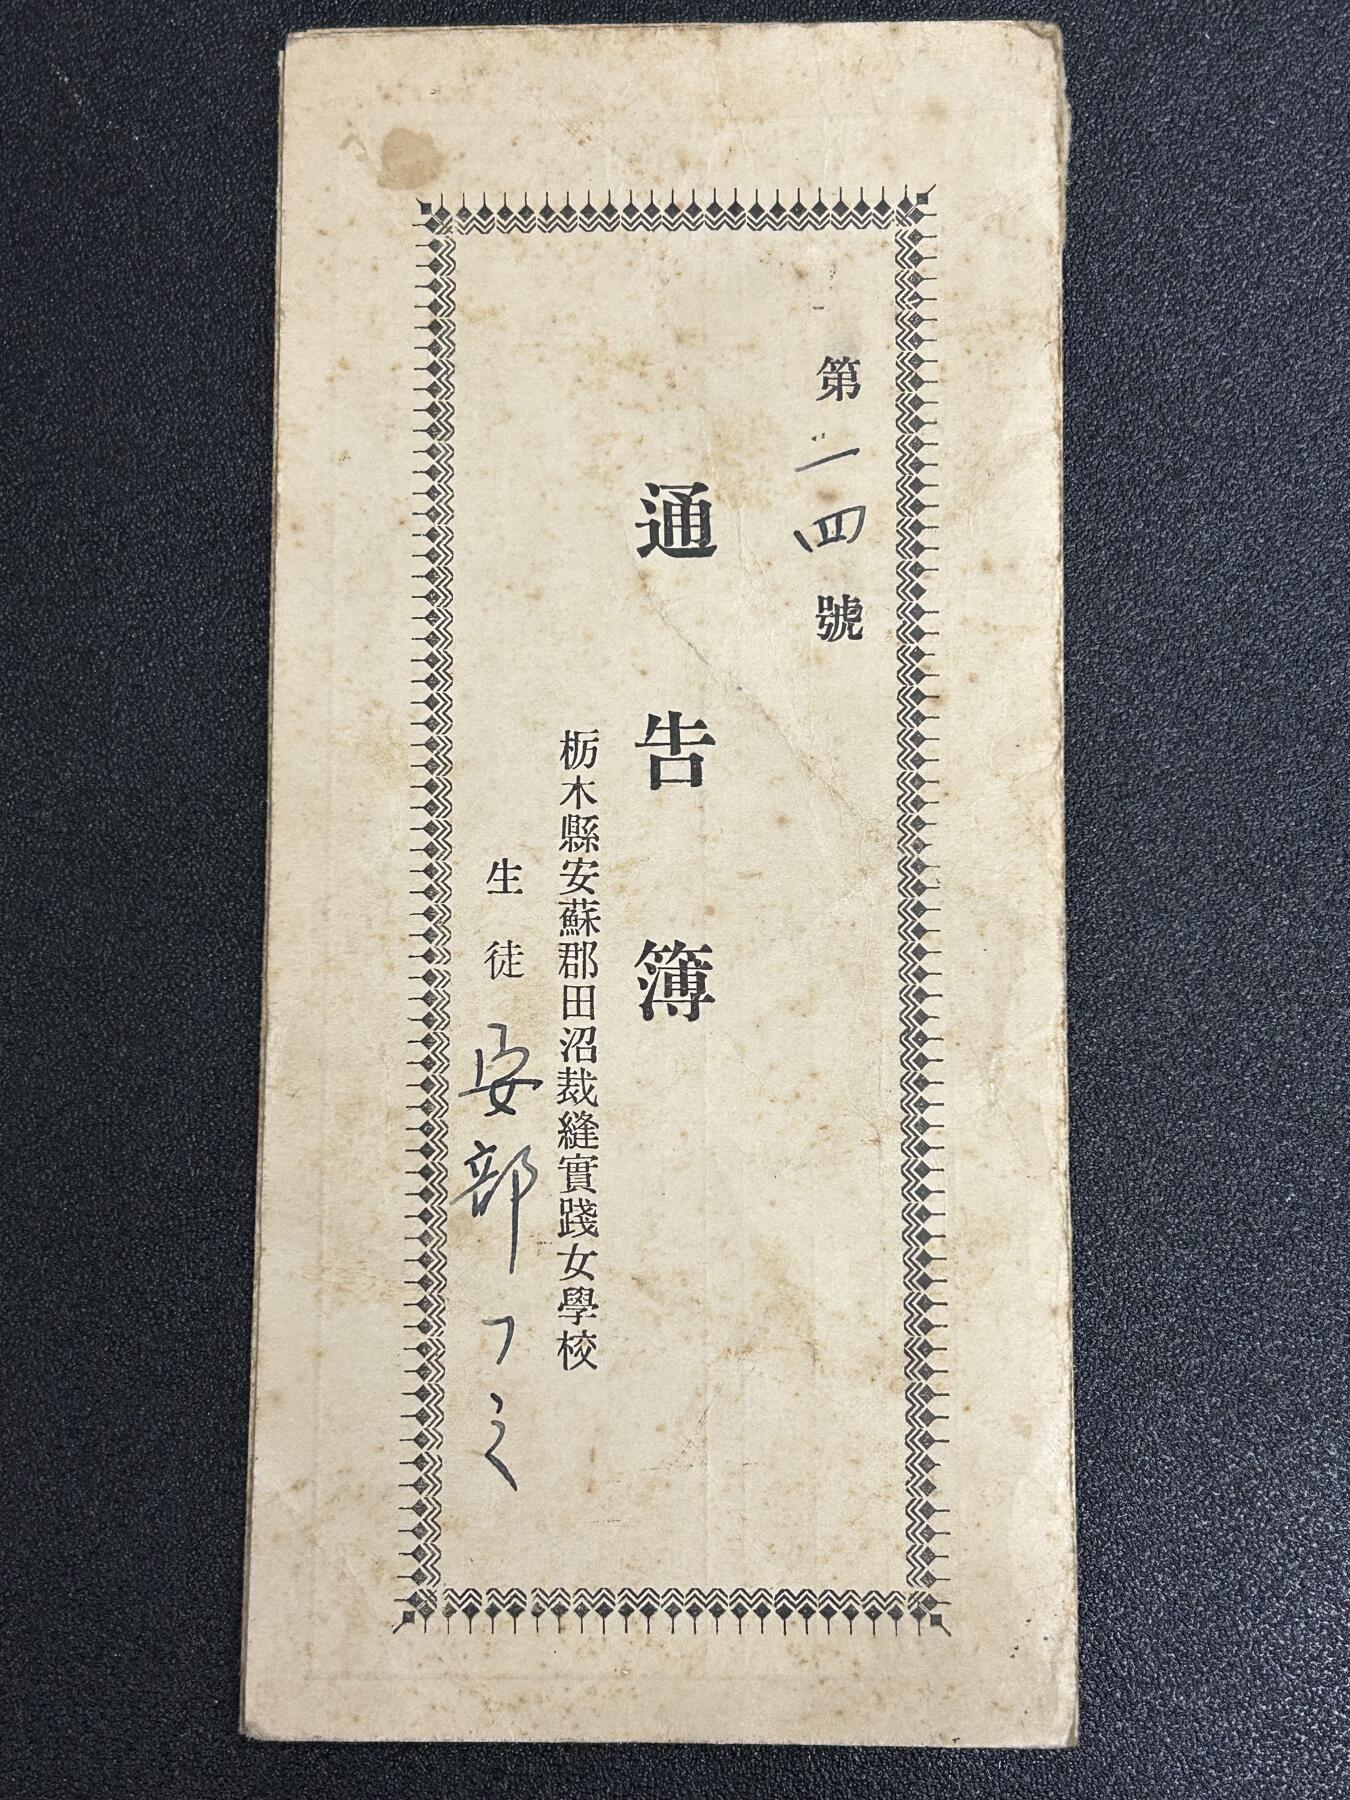 第二四號
通告簿
栃木縣安蘇郡田沼裁縫實踐女學校
生徒 安部フミ